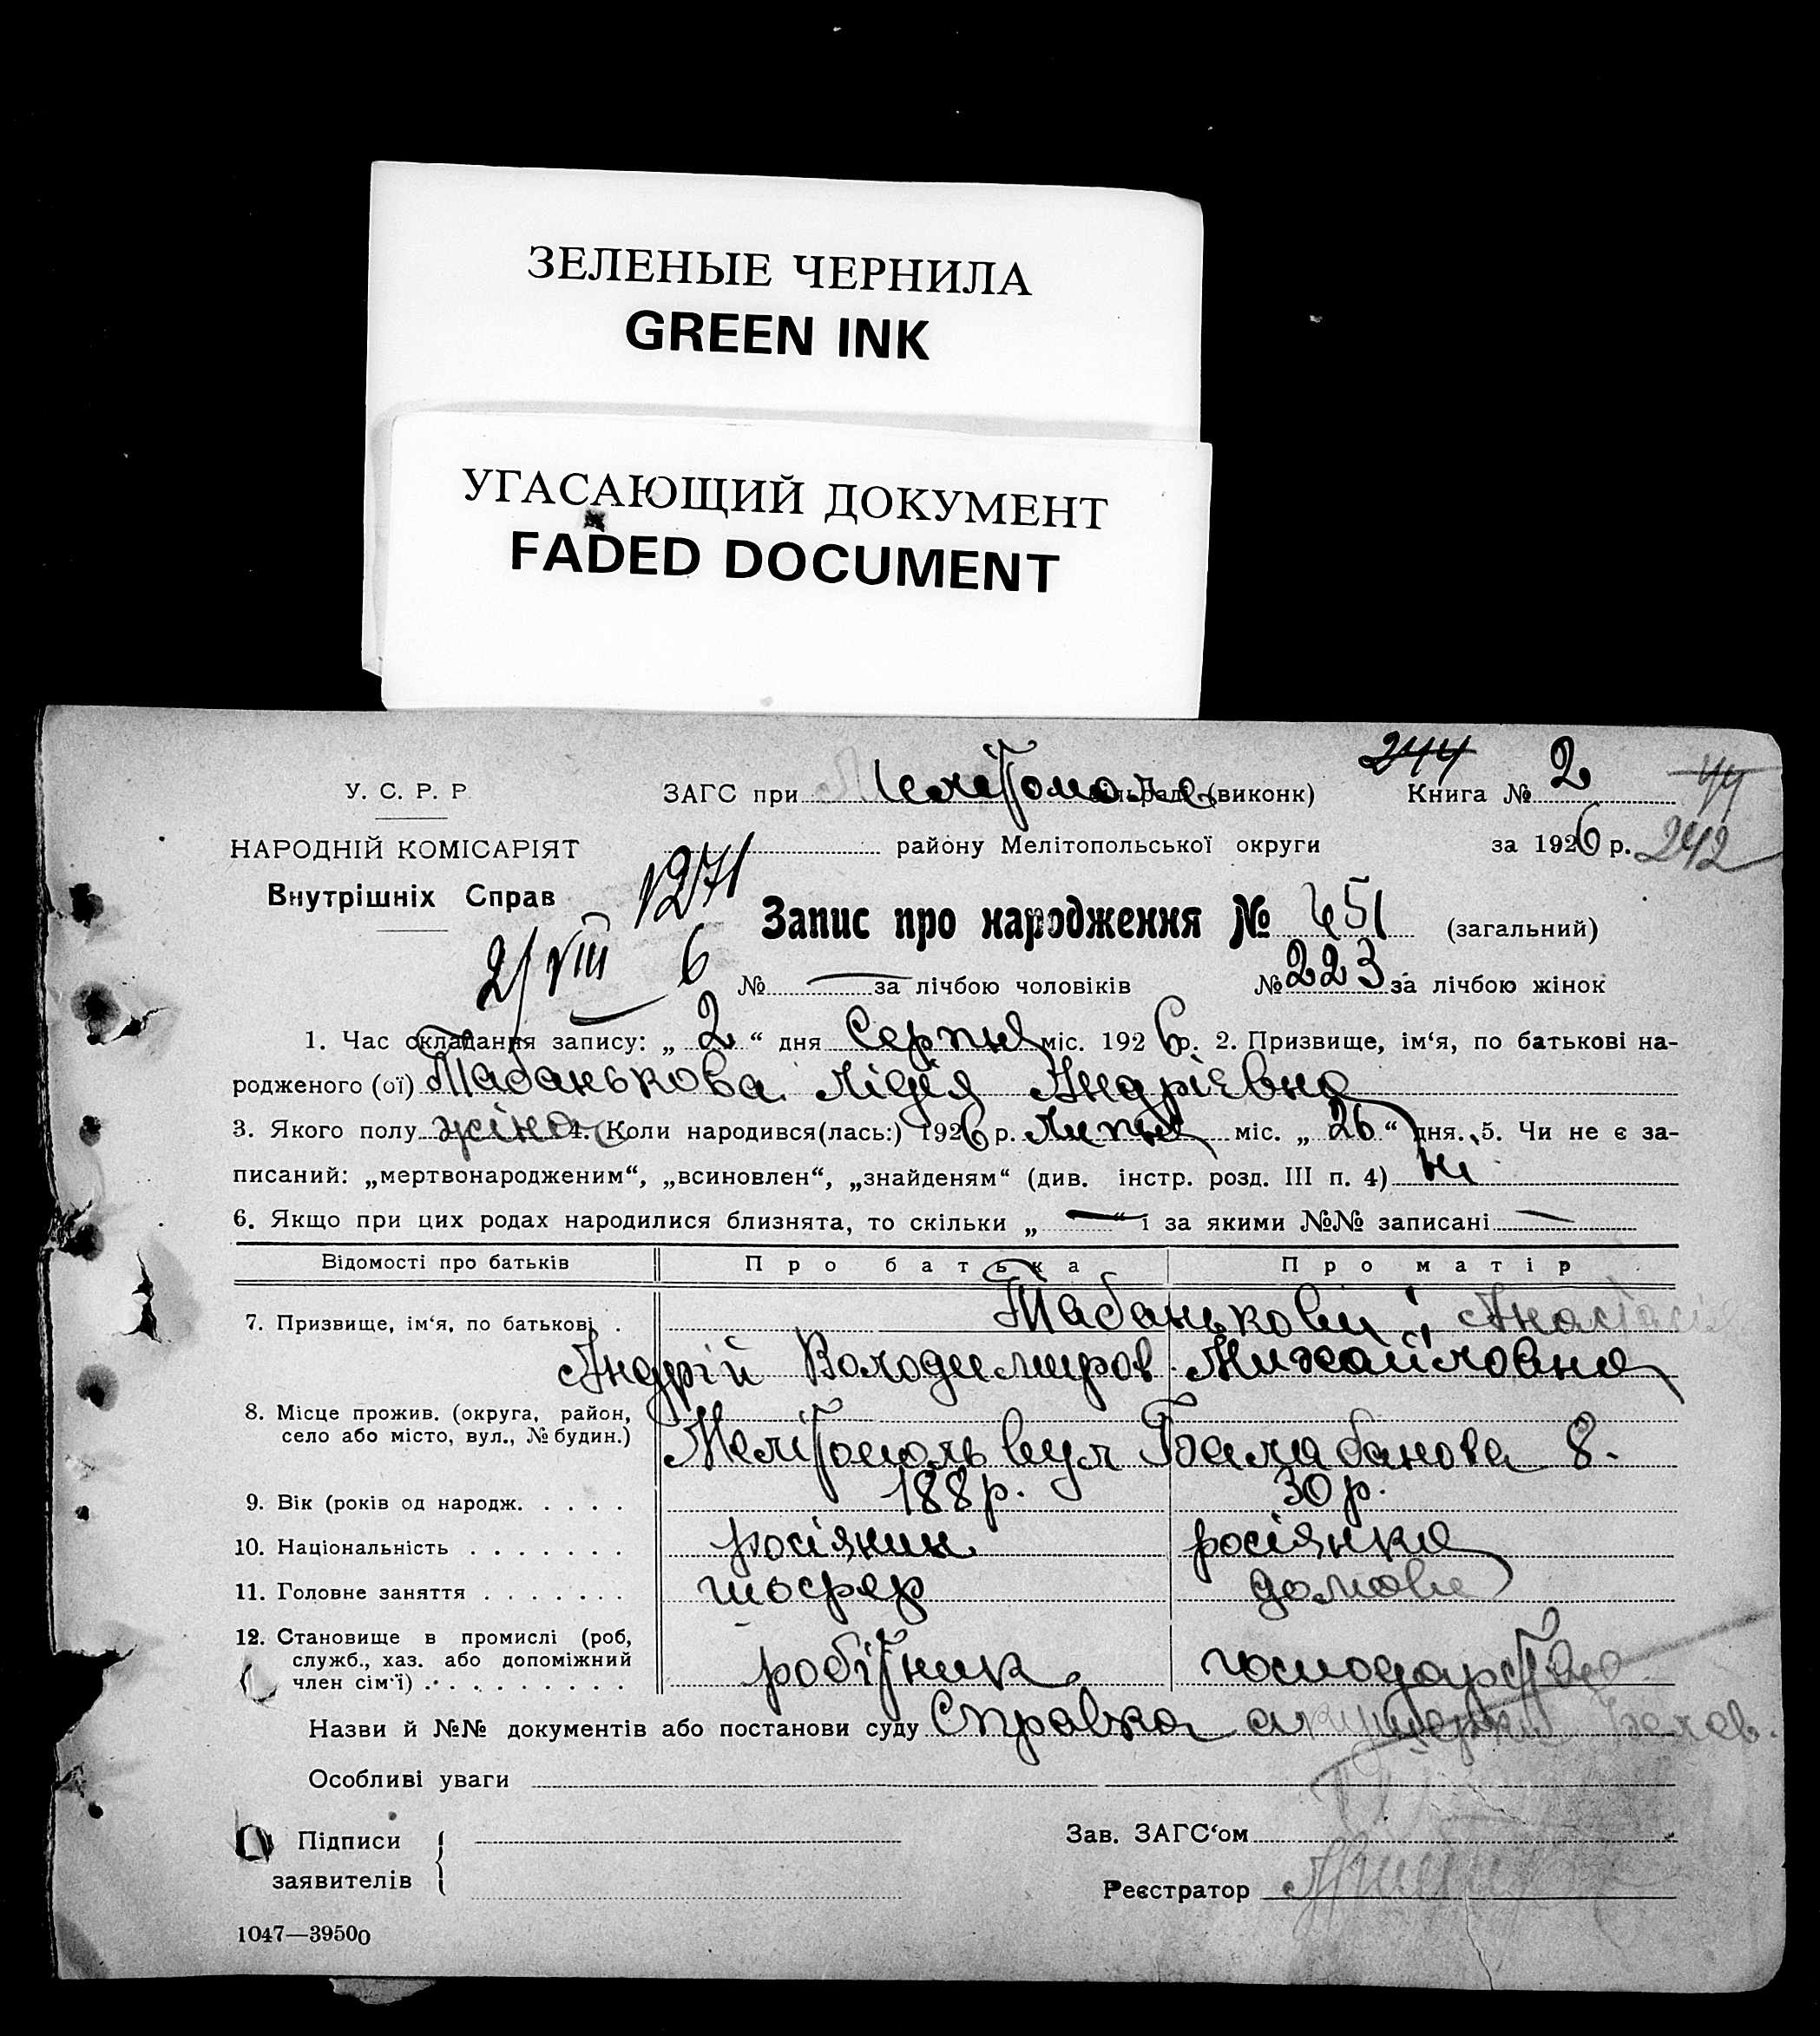 ЗЕЛЕНЫЕ ЧЕРНИЛА
GREEN INK
УГАСАЮЩИЙ ДОКУМЕНТ
FADED DOCUMENT
244
У. С. Р. Р. ЗАГС при Мелітополе (виконк) Книга № 2 44
НАРОДНІЙ КОМІСАРІЯТ району Мелітопольської округи за 1926 р. 242
Внутрішніх Справ 1271
Запис про народження № 451 (загальний)
2/VIII 6 № — за лічбою чоловіків № 223 за лічбою жінок
1. Час складання запису: „ 2 “ дня Серпня міс. 1926 р. 2. Призвище, ім‘я, по батькові на-
родженого (ої) Табанькова Лідія Андрієвна
3. Якого полу жіноч 4. Коли народився(лась:) 1926 р. Липня міс. „ 26 “ дня. 5. Чи не є за-
писаний: „мертвонародженим“, „всиновлен“, „знайденям“ (див. інстр. розд. III п. 4) ні
6. Якщо при цих родах народилися близнята, то скільки „ — “ і за якими №№ записані —
Відомості про батьків Про батька Про матір
7. Призвище, ім‘я, по батькові . Табанькови; Анастасія
Андрій Володимиров. Михайловна
8. Місце прожив. (округа, район,
село або місто, вул., № будин.) Мелітополь вул Балабанова 8.
9. Вік (років од народж. . . . . 188р. 30р.
10. Національність . . . . . . . росіянин росіянка
11. Головне заняття . . . . . . . шофер домове
12. Становище в промислі (роб,
служб., хаз. або допоміжний
член сім‘ї) . . . . . . . . . . робітник господарство
Назви й №№ документів або постанови суду Справка акушерки
Особливі уваги
Підписи Зав. ЗАГС‘ом
заявителів Реєстратор
1047—39500